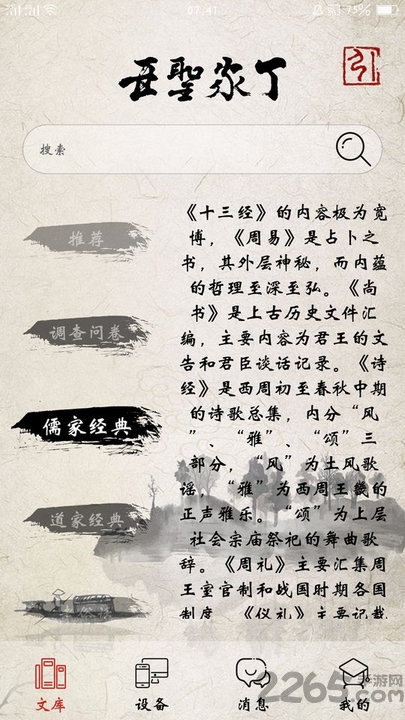 07:41
75%
吾聖家丁
引
搜索
推荐
调查问卷
儒家经典
道家经典
《十三经》的内容极为宽
博，《周易》是占卜之
书，其外层神秘，而内蕴
的哲理至深至弘。《尚
书》是上古历史文件汇
编，主要内容为君王的文
告和君臣谈话记录。《诗
经》是西周初至春秋中期
的诗歌总集，内分“风
”、“雅”、“颂”三
部分，“风”为土风歌
谣，“雅”为西周王畿的
正声雅乐。“颂”为上层
社会宗庙祭祀的舞曲歌
辞。《周礼》主要汇集周
王室官制和战国时期各国
制度。《仪礼》主要记载
文库
设备
消息
我的
2265.com